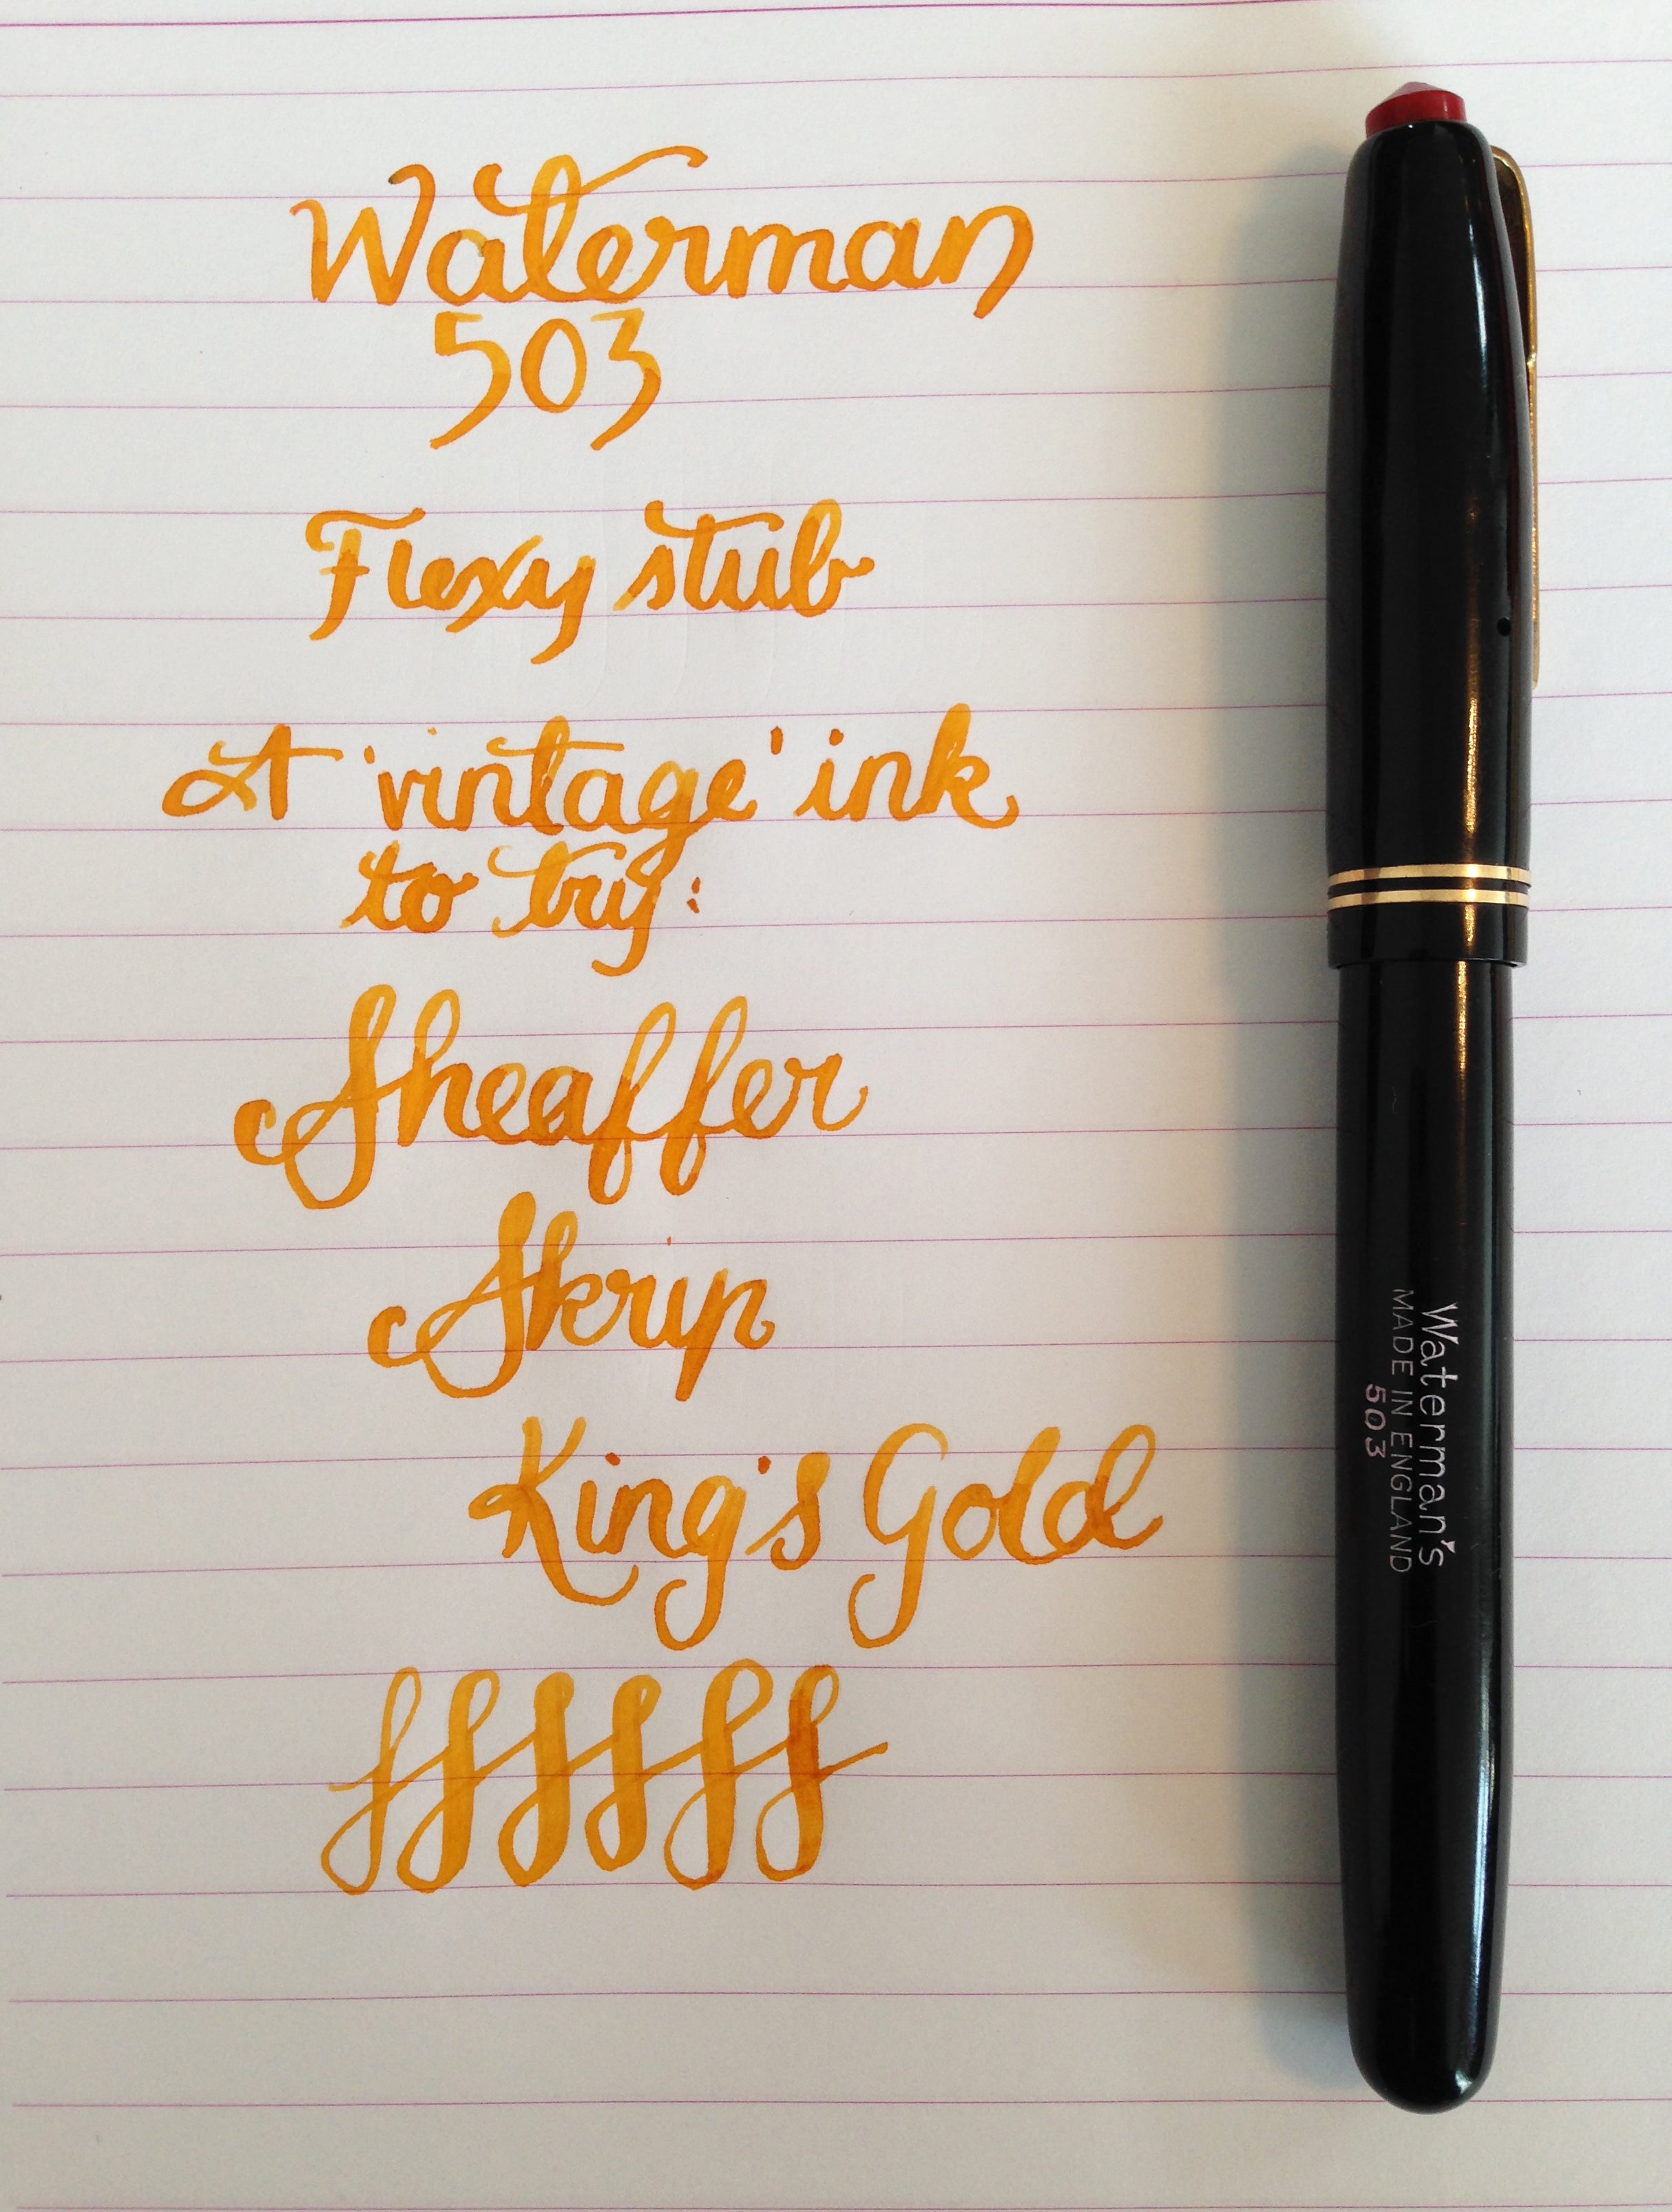 Waterman
503
Flexy stub
A 'vintage' ink
to try:
Sheaffer
Skrip
King's Gold
ffffff
Waterman's
MADE IN ENGLAND
503